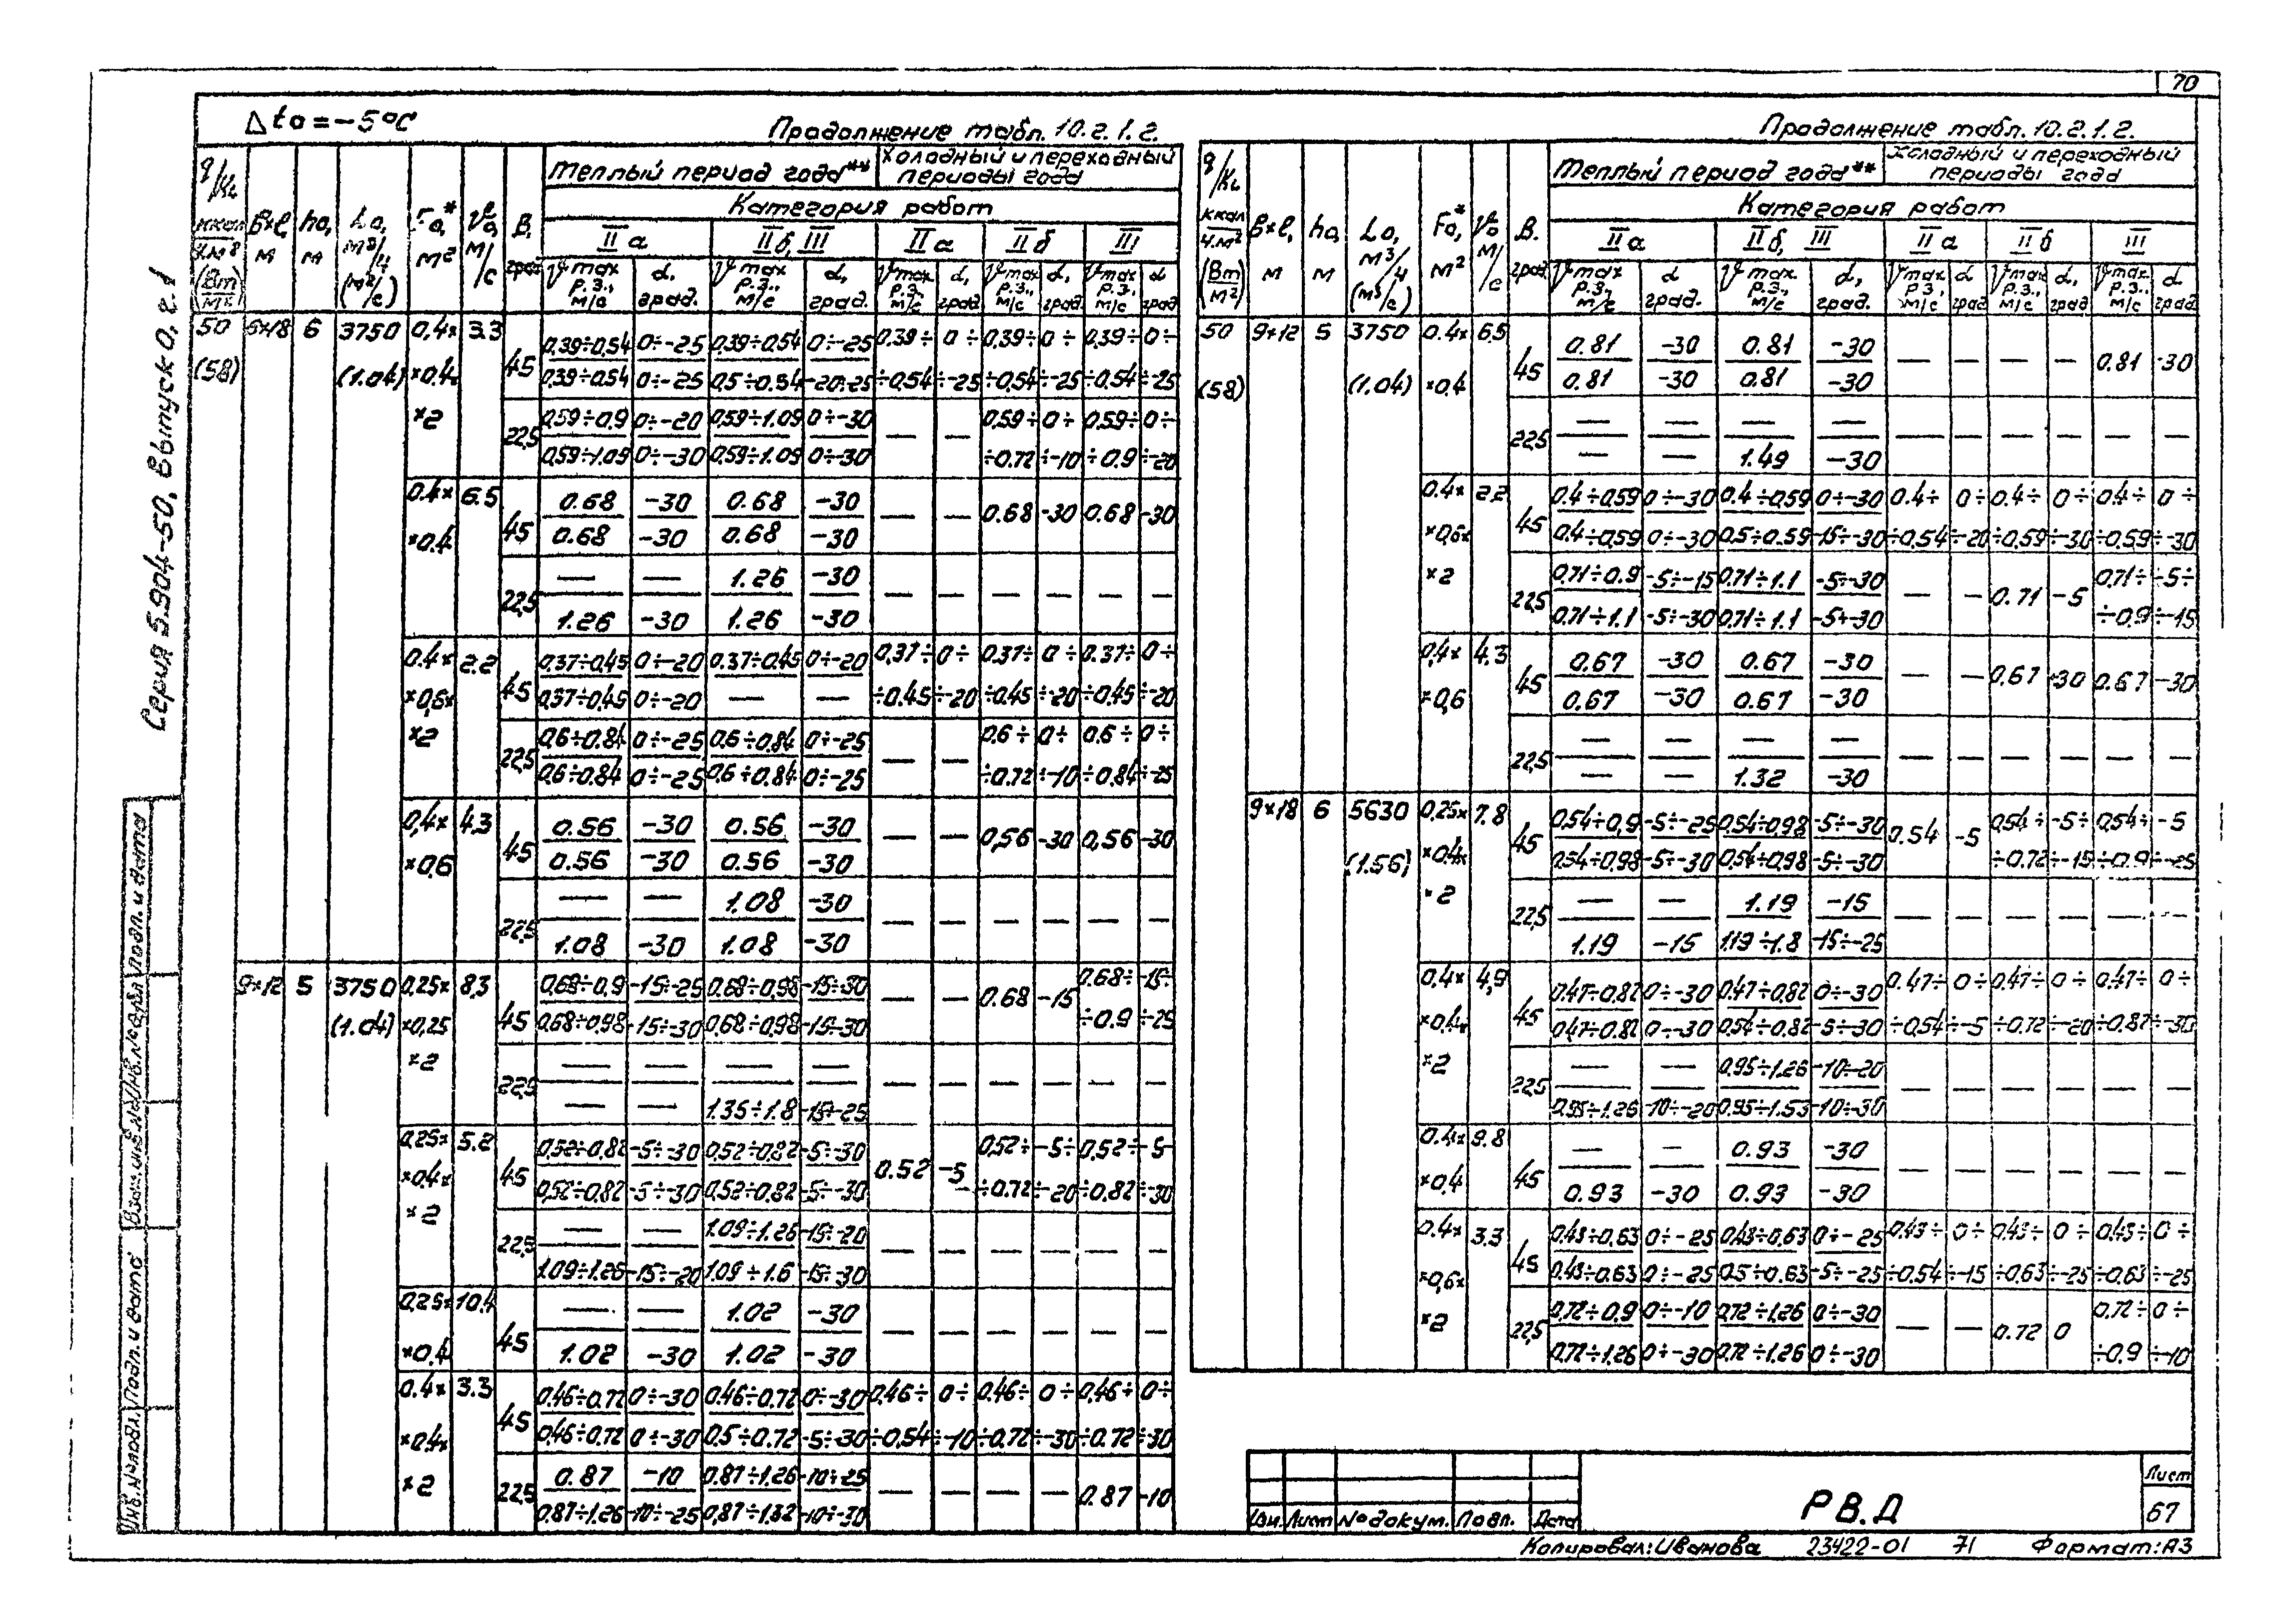 70
Δto=-5°C
Продолжение табл. 10.2.1.2.
q/KL ккал/ч.м² (Вт/м²) | Вхl, м | ho, м | Lo, м³/ч (м³/с) | Fo,* м² | Vo, м/с | В, град. | Теплый период года** | Холодный и переходный периоды года
Категория работ
IIа | IIб, III | IIа | IIб | III
Vmax р.з., м/с | α, град. | Vmax р.з., м/с | α, град. | Vmax р.з., м/с | α, град. | Vmax р.з., м/с | α, град. | Vmax р.з., м/с | α град
50 (58) | 6×18 | 6 | 3750 (1.04) | 0,4××0,4××2 | 3.3 | 45 | 0,39÷0,54 | 0÷-25 | 0,39÷0,54 | 0÷-25 | 0,39÷÷0,54 | 0÷÷-25 | 0,39÷÷0,54 | 0÷÷-25 | 0,39÷÷0,54 | 0÷÷-25
0,39÷0,54 | 0÷-25 | 0,5÷0,54 | -20÷-25
22,5 | 0,59÷0,9 | 0÷-20 | 0,59÷1.09 | 0÷-30 | — | — | 0,59÷÷0.72 | 0÷÷-10 | 0,59÷÷0.9 | 0÷÷-20
0,59÷1.09 | 0÷-30 | 0,59÷1.09 | 0÷-30
0.4××0.4 | 6.5 | 45 | 0.68 | -30 | 0.68 | -30 | — | — | 0.68 | -30 | 0.68 | -30
0.68 | -30 | 0.68 | -30
22,5 | — | — | 1.26 | -30 | — | — | — | — | — | —
1.26 | -30 | 1.26 | -30
0.4××0,6××2 | 2.2 | 45 | 0,37÷0,45 | 0÷-20 | 0.37÷0,45 | 0÷-20 | 0,37÷÷0.45 | 0÷÷-20 | 0.37÷÷0,45 | 0÷÷-20 | 0.37÷÷0,45 | 0÷÷-20
0,37÷0,45 | 0÷-20 | — | —
22,5 | 0,6÷0.84 | 0÷-25 | 0,6÷0,84 | 0÷-25 | — | — | 0,6÷÷0.72 | 0÷÷-10 | 0,6÷÷0,84 | 0÷÷-25
0,6÷0.84 | 0÷-25 | 0,6÷0.84 | 0÷-25
0,4××0,6 | 4.3 | 45 | 0.56 | -30 | 0.56 | -30 | — | — | 0,56 | -30 | 0,56 | -30
0.56 | -30 | 0.56 | -30
22,5 | — | — | 1.08 | -30 | — | — | — | — | — | —
1.08 | -30 | 1.08 | -30
9×12 | 5 | 3750 (1.04) | 0,25××0,25×2 | 8,3 | 45 | 0,68÷0,9 | -15÷-25 | 0,68÷0,98 | -15÷-30 | — | — | 0.68 | -15 | 0.68÷÷0.9 | -15÷÷-25
0,68÷0,98 | -15÷-30 | 0,68÷0,98 | -15÷-30
22,5 | — | — | — | — | — | — | — | — | — | —
— | — | 1.35÷1.8 | -15÷-25
0,25××0,4××2 | 5.2 | 45 | 0,52÷0,82 | -5÷-30 | 0,52÷0,82 | -5÷-30 | 0.52 | -5 | 0,52÷÷0.72 | -5÷÷-20 | 0,52÷÷0,82 | -5÷÷-30
0,52÷0,82 | -5÷-30 | 0,52÷0.82 | -5÷-30
22,5 | — | — | 1.09÷1.26 | -15÷-20 | — | — | — | — | — | —
1.09÷1.26 | -15÷-20 | 1.09÷1.6 | -15÷-30
0,25××0,4 | 10.4 | 45 | — | — | 1.02 | -30 | — | — | — | — | — | —
1.02 | -30 | 1.02 | -30
0.4××0,4××2 | 3.3 | 45 | 0,46÷0,72 | 0÷-30 | 0.46÷0.72 | 0÷-30 | 0,46÷÷0,54 | 0÷÷-10 | 0.46÷÷0.72 | 0÷÷-30 | 0,46÷÷0.72 | 0÷÷-30
0,46÷0,72 | 0÷-30 | 0,5÷0.72 | -5÷-30
22,5 | 0.87 | -10 | 0,87÷1.26 | -10÷-25 | — | — | — | — | 0.87 | -10
0,87÷1.26 | -10÷-25 | 0,87÷1.32 | -10÷-30
Продолжение табл. 10.2.1.2.
q/KL ккал/ч.м² (Вт/м²) | Вхl, м | ho, м | Lo, м³/ч (м³/с) | Fo,* м² | Vo м/с | В. град. | Теплый период года** | Холодный и переходный периоды года
Категория работ
IIа | IIб, III | IIа | IIб | III
Vmax р.з., м/с | α град. | Vmax р.з., м/с | α, град. | Vmax р.з., м/с | α град | Vmax р.з., м/с | α, град | Vmax р.з., м/с | α град
50 (58) | 9×12 | 5 | 3750 (1.04) | 0.4××0,4 | 6,5 | 45 | 0.81 | -30 | 0.81 | -30 | — | — | — | — | 0.81 | -30
0.81 | -30 | 0.81 | -30
22,5 | — | — | — | — | — | — | — | — | — | —
— | — | 1.49 | -30
0.4××0,6××2 | 2.2 | 45 | 0.4÷0,59 | 0÷-30 | 0.4÷0,59 | 0÷-30 | 0.4÷÷0,54 | 0÷÷-20 | 0.4÷÷0,59 | 0÷÷-30 | 0.4÷÷0,59 | 0÷÷-30
0.4÷0,59 | 0÷-30 | 0.5÷0.59 | -15÷-30
22,5 | 0,71÷0.9 | -5÷-15 | 0,71÷1.1 | -5÷-30 | — | — | 0.71 | -5 | 0,71÷÷0,9 | -5÷÷-15
0,71÷1.1 | -5÷-30 | 0,71÷1.1 | -5÷-30
0,4××0,6 | 4.3 | 45 | 0.67 | -30 | 0.67 | -30 | — | — | 0,67 | -30 | 0.67 | -30
0.67 | -30 | 0.67 | -30
22,5 | — | — | — | — | — | — | — | — | — | —
— | — | 1.32 | -30
9×18 | 6 | 5630 (1.56) | 0,25××0,4××2 | 7.8 | 45 | 0,54÷0,9 | -5÷-25 | 0,54÷0,98 | -5÷-30 | 0.54 | -5 | 0,54÷÷0.72 | -5÷÷-15 | 0,54÷÷0.9 | -5÷-25
0,54÷0,98 | -5÷-30 | 0,54÷0,98 | -5÷-30
22,5 | — | — | 1.19 | -15 | — | — | — | — | — | —
1.19 | -15 | 1.19÷1.8 | -15÷-25
0.4××0,4××2 | 4,9 | 45 | 0,47÷0,82 | 0÷-30 | 0,47÷0,82 | 0÷-30 | 0.47÷÷0,54 | 0÷÷-5 | 0,47÷÷0.72 | 0÷÷-20 | 0,47÷÷0,82 | 0÷÷-30
0,47÷0.82 | 0÷-30 | 0,54÷0,82 | -5÷-30
22,5 | — | — | 0.95÷1.26 | -10÷-20 | — | — | — | — | — | —
0.95÷1.26 | -10÷-20 | 0.95÷1.53 | -10÷-30
0.4××0,4 | 9.8 | 45 | — | — | 0.93 | -30 | — | — | — | — | — | —
0.93 | -30 | 0.93 | -30
0.4××0,6××2 | 3.3 | 45 | 0,43÷0,63 | 0÷-25 | 0,43÷0,63 | 0÷-25 | 0,43÷÷0,54 | 0÷÷-15 | 0,43÷÷0,63 | 0÷÷-25 | 0,43÷÷0,63 | 0÷÷-25
0,43÷0.63 | 0÷-25 | 0.5÷0.63 | -5÷-25
22,5 | 0,72÷0,9 | 0÷-10 | 0,72÷1,26 | 0÷-30 | — | — | 0.72 | 0 | 0.72÷÷0,9 | 0÷÷-10
0,72÷1.26 | 0÷-30 | 0,72÷1.26 | 0÷-30
Серия 5.904-50, выпуск 0, ч.1
Инв.№подл. Подп. и дата Взам.инв.№ Инв.№дубл. Подп. и дата
Изм. Лист №докум. Подп. Дата
РВ.Д
Лист
67
Копировал: Иванова 23422-01 71 Формат: А3